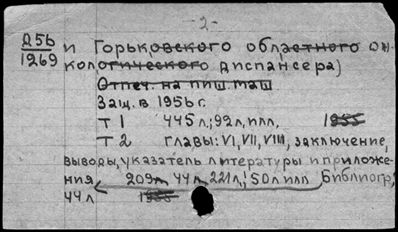 -2-
Д56 и Горьковского областного он
1269 кологического диспансера)
Отпеч. на пиш.маш
Защ. в 1956г.
Т 1 445л; 92л, илл. 1955
Т 2 главы: VI, VII, VIII, заключение,
выводы, указатель литературы и приложе-
ния 209л, 44л, 221л; 50л илл Библиогр;
44л 1955